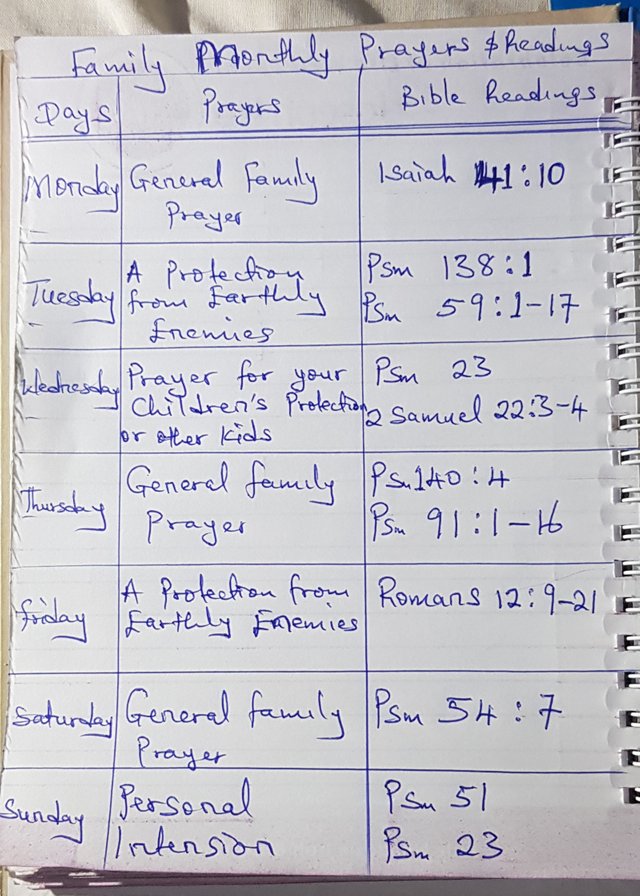 Family Monthly Prayers & Readings
Days Prayers Bible Readings
Monday General Family Prayer Isaiah 41:10
Tuesday A Protection from Earthly Enemies Psm 138:1
Psm 59:1-17
Wednesday Prayer for your Children's Protection or other kids Psm 23
2 Samuel 22:3-4
Thursday General family Prayer Psm 140:4
Psm 91:1-16
Friday A Protection from Earthly Enemies Romans 12:9-21
Saturday General family Prayer Psm 54:7
Sunday Personal Intension Psm 51
Psm 23